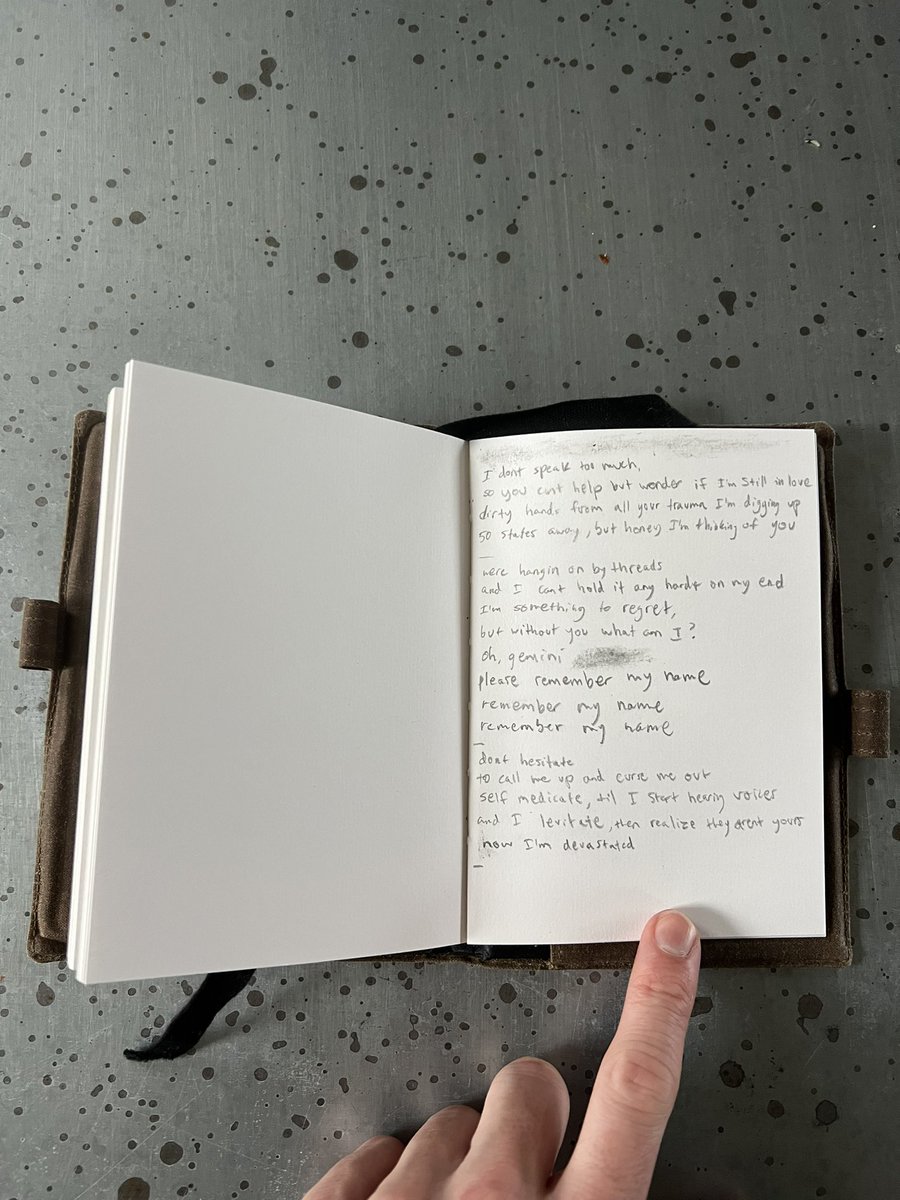 I dont speak too much,
so you cant help but wonder if I'm still in love
dirty hands from all your trauma I'm digging up
50 states away, but honey I'm thinking of you
—
were hangin on by threads
and I cant hold it any hardr on my end
I'm something to regret,
but without you what am I?
oh, gemini
please remember my name
remember my name
remember my name
—
dont hesitate
to call me up and curse me out
self medicate, til I start hearing voices
and I levitate, then realize they arent yours
now I'm devastated
—